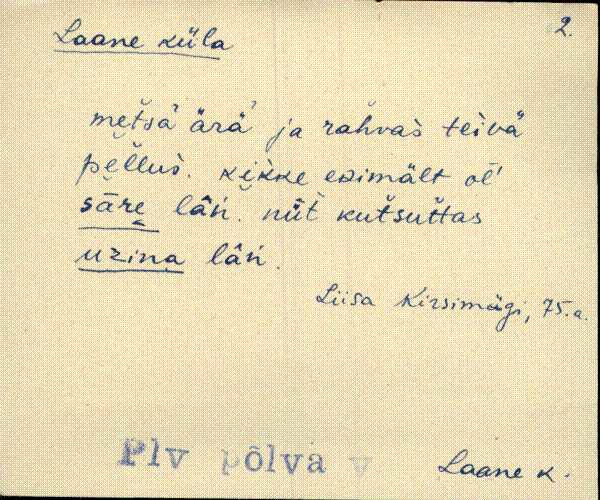 Laane küla
2.
met̆sä ärä' ja rahvas̀ teivä̆
pe̮l̆lus̀. ke̮ikke ezimält ol'
sāre̮ lâń. nüt̀ kut̆sut̆tas
uzina lâń.
Liisa Kirsimägi, 75.a.
Plv põlva v
Laane k.